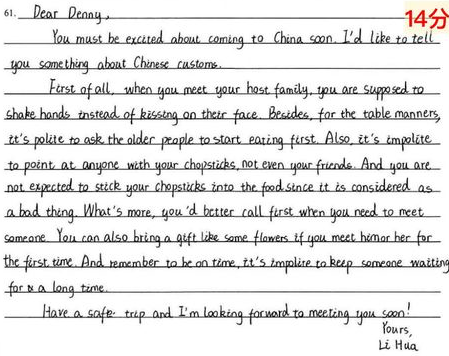 14分
61. Dear Denny,
You must be excited about coming to China soon. I'd like to tell
you something about Chinese customs.
First of all, when you meet your host family, you are supposed to
shake hands instead of kissing on their face. Besides, for the table manners,
it's polite to ask the older people to start eating first. Also, it's impolite
to point at anyone with your chopsticks, not even your friends. And you are
not expected to stick your chopsticks into the food since it is considered as
a bad thing. What's more, you'd better call first when you need to meet
someone. You can also bring a gift like some flowers if you meet him or her for
the first time. And remember to be on time, it's impolite to keep someone waiting
for a long time.
Have a safe trip and I'm looking forward to meeting you soon!
Yours,
Li Hua